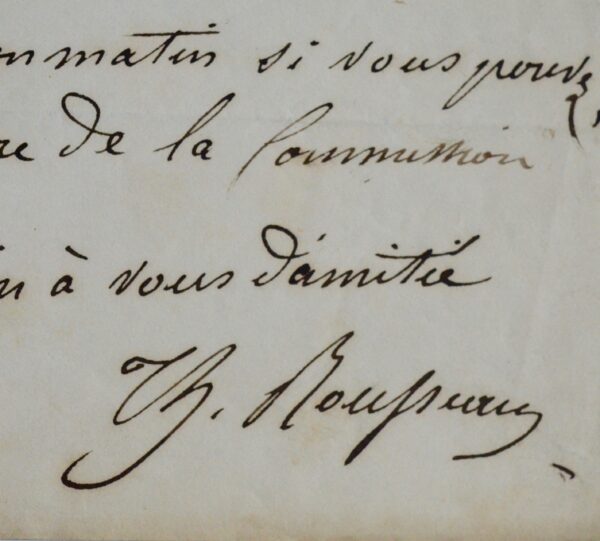 matin si vous pouvez
de la Commission
à vous d'amitié
Th. Rousseau